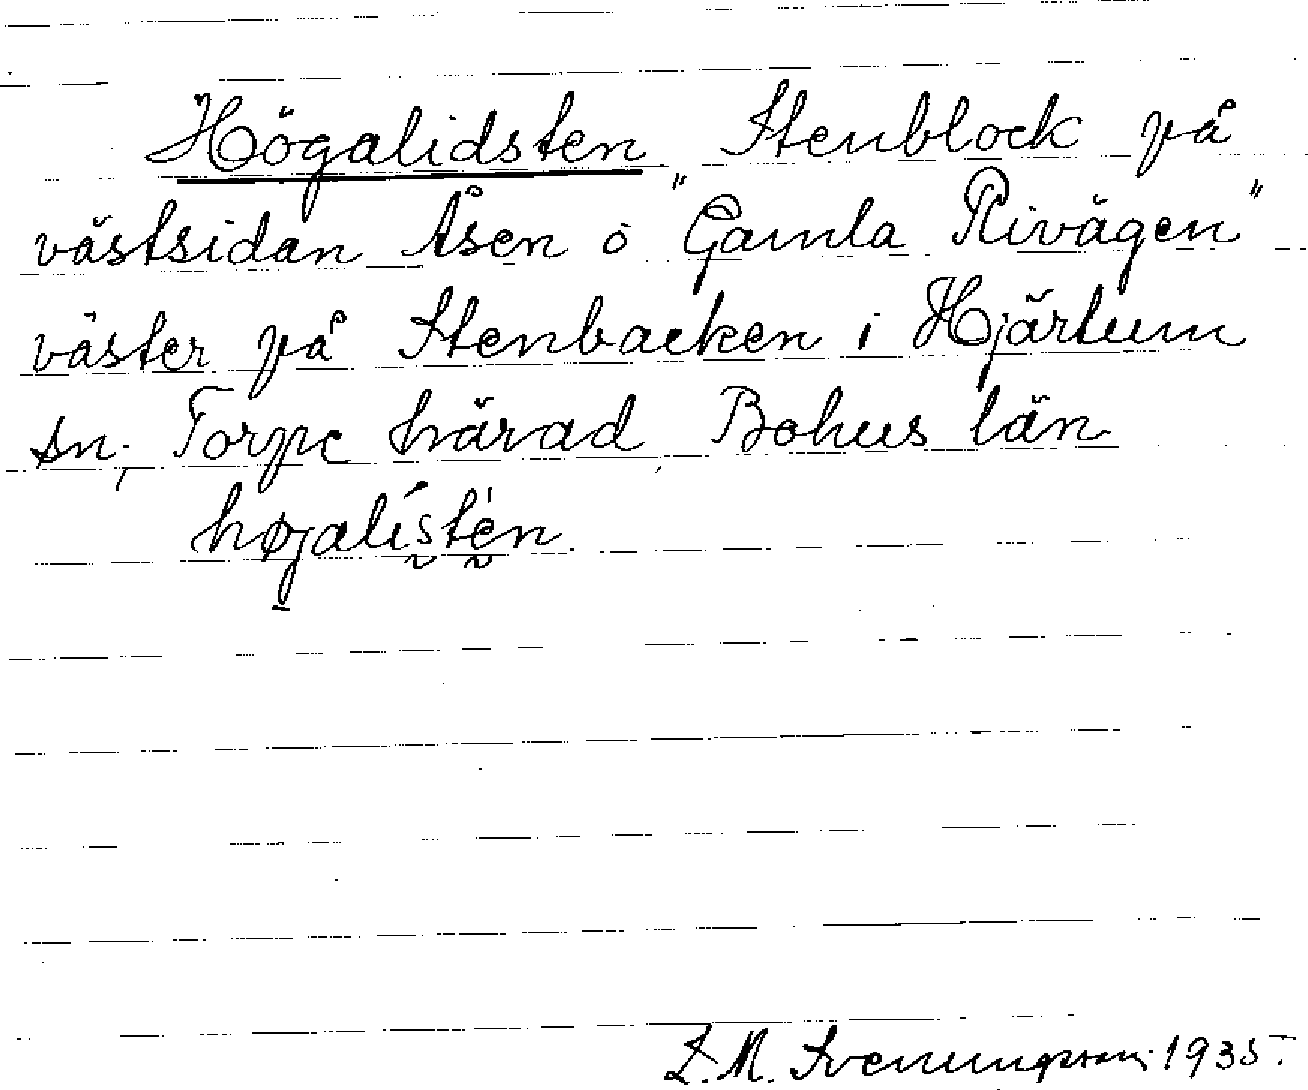 Högalidsten Stenblock på
västsidan Åsen ö "Gamla Rivägen"
väster på Stenbacken i Hjärtum
sn; Torpe härad, Bohus län
højalístén
L. M. Svenungsson 1935.